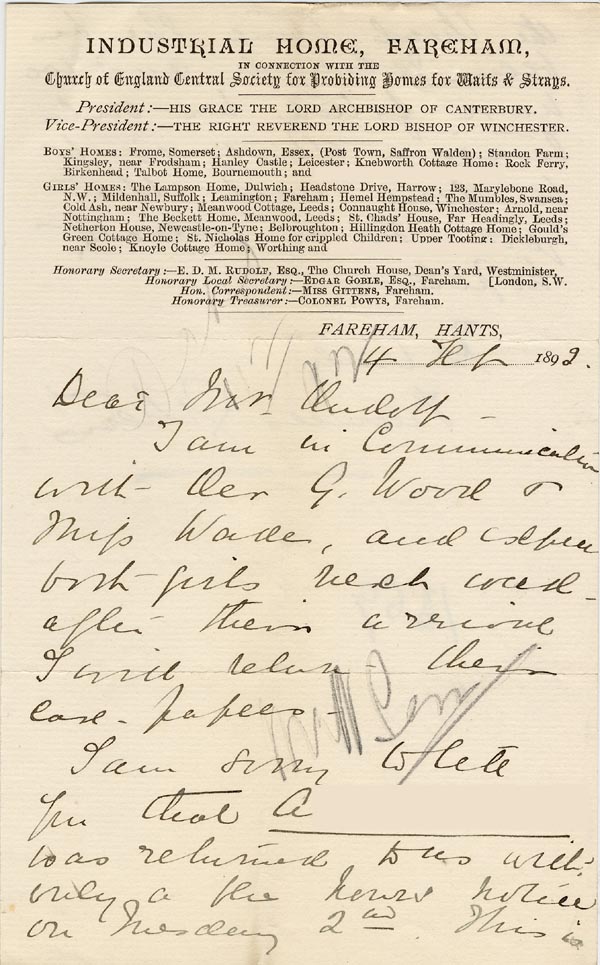 INDUSTRIAL HOME, FAREHAM,
IN CONNECTION WITH THE
Church of England Central Society for Probiding Homes for Waifs & Strays.
President:—HIS GRACE THE LORD ARCHBISHOP OF CANTERBURY.
Vice-President:—THE RIGHT REVEREND THE LORD BISHOP OF WINCHESTER.
BOYS' HOMES: Frome, Somerset; Ashdown, Essex, (Post Town, Saffron Walden); Standon Farm;
Kingsley, near Frodsham; Hanley Castle; Leicester; Knebworth Cottage Home: Rock Ferry,
Birkenhead; Talbot Home, Bournemouth; and
GIRLS' HOMES: The Lampson Home, Dulwich; Headstone Drive, Harrow; 123, Marylebone Road,
N.W.; Mildenhall, Suffolk; Leamington; Fareham; Hemel Hempstead; The Mumbles, Swansea;
Cold Ash, near Newbury; Meanwood Cottage, Leeds; Connaught House, Winchester; Arnold, near
Nottingham; The Beckett Home, Meanwood, Leeds; St. Chads' House, Far Headingly, Leeds;
Netherton House, Newcastle-on-Tyne; Belbroughton; Hillingdon Heath Cottage Home; Gould's
Green Cottage Home; St. Nicholas Home for crippled Children; Upper Tooting; Dickleburgh,
near Scole; Knoyle Cottage Home; Worthing and
Honorary Secretary:—E. D. M. RUDOLF, ESQ., The Church House, Dean's Yard, Westminister,
Honorary Local Secretary:—EDGAR GOBLE, ESQ., Fareham. [London, S.W.
Hon. Correspondent:—MISS GITTENS, Fareham.
Honorary Treasurer:—COLONEL POWYS, Fareham.
FAREHAM, HANTS,
4 Feb 1892.
Dear Mr. Rudolf -
I am in Communication
with Rev G. Wood &
Miss Wade, and expect
both girls next week -
after their arrival
I will return their
case-papers -
I am sorry to state
for that A
was returned to us with
only a few hours notice
on Tuesday 2nd. This is